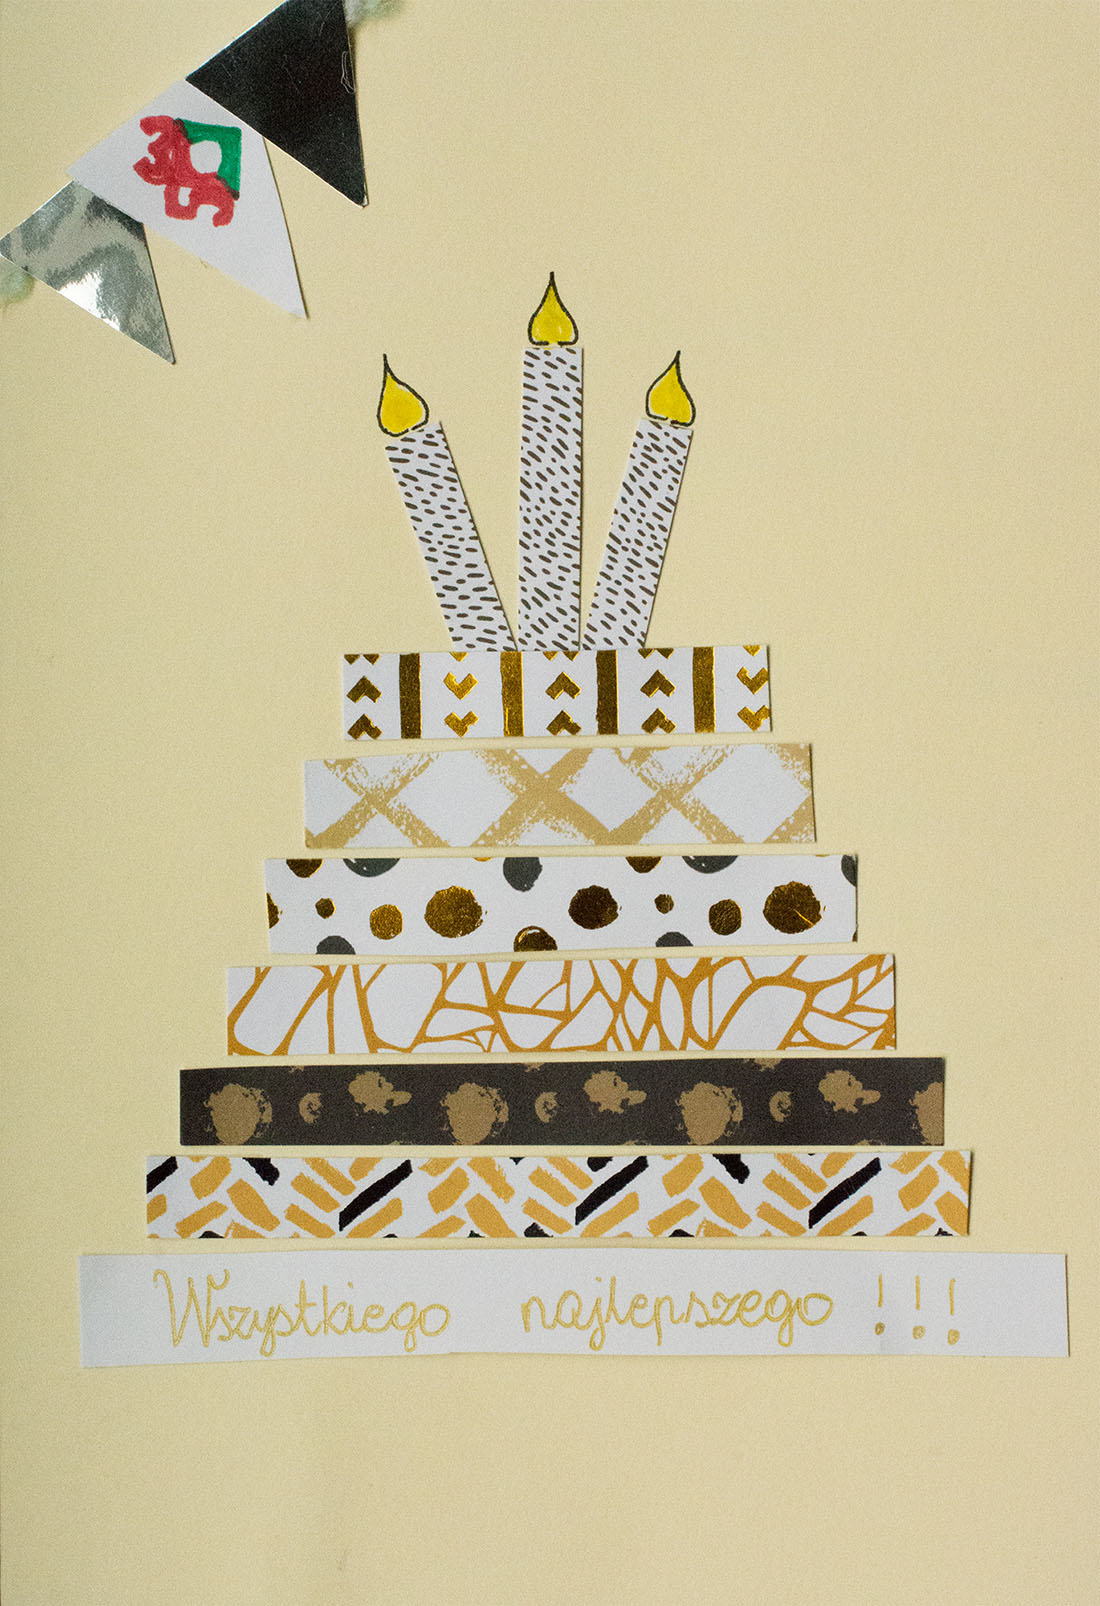 Wszystkiego najlepszego !!!